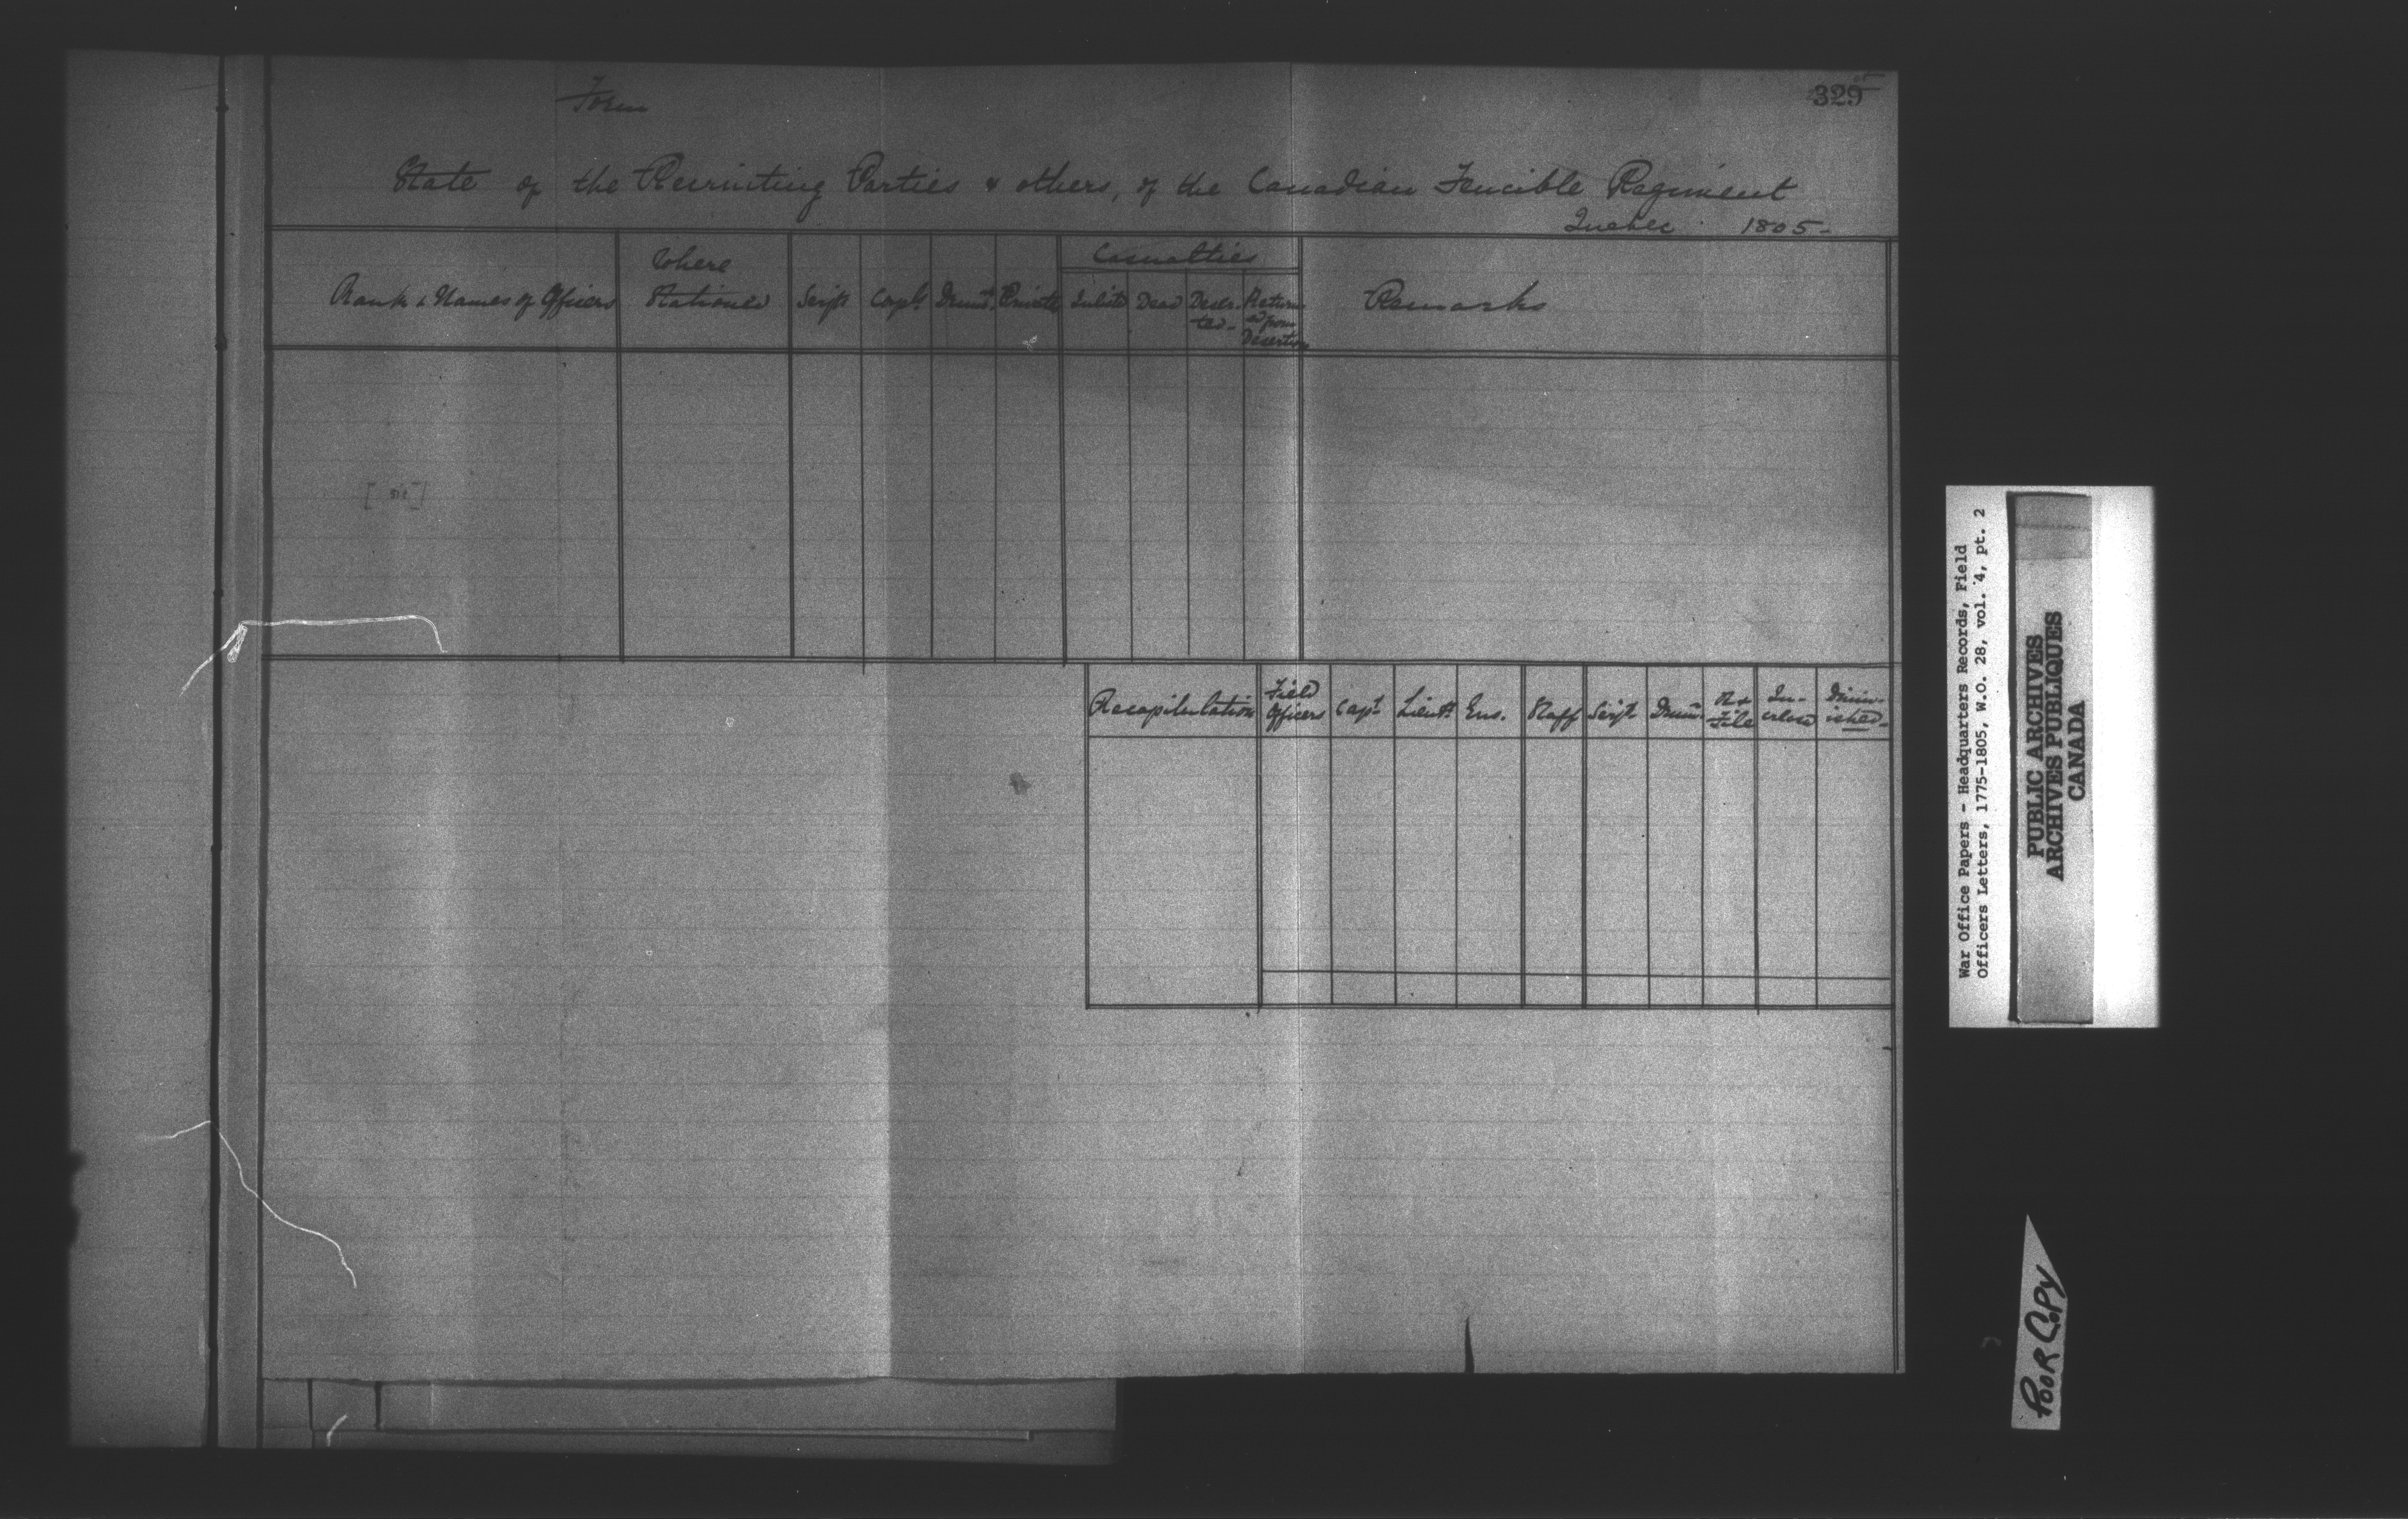 Form
329
State of the Recruiting Parties & others, of the Canadian Fencible Regiment
Quebec 1805-
Rank & Names of Officers
Where Stationed
Serjts
Corpls
Drumrs
Privates
Casualties
Inlistd
Dead
Deser-
ted-
Return
ed from
Desertion
Remarks
[sic]
Recapitulation
Field
Officers
Capts
Lieuts
Ens.
Staff
Serjts
Drumrs
R &
File
In-
crease
Dimin-
ished-
War Office Papers - Headquarters Records, Field
Officers Letters, 1775-1805, W.O. 28, vol. 4, pt. 2
PUBLIC ARCHIVES
ARCHIVES PUBLIQUES
CANADA
POOR COPY